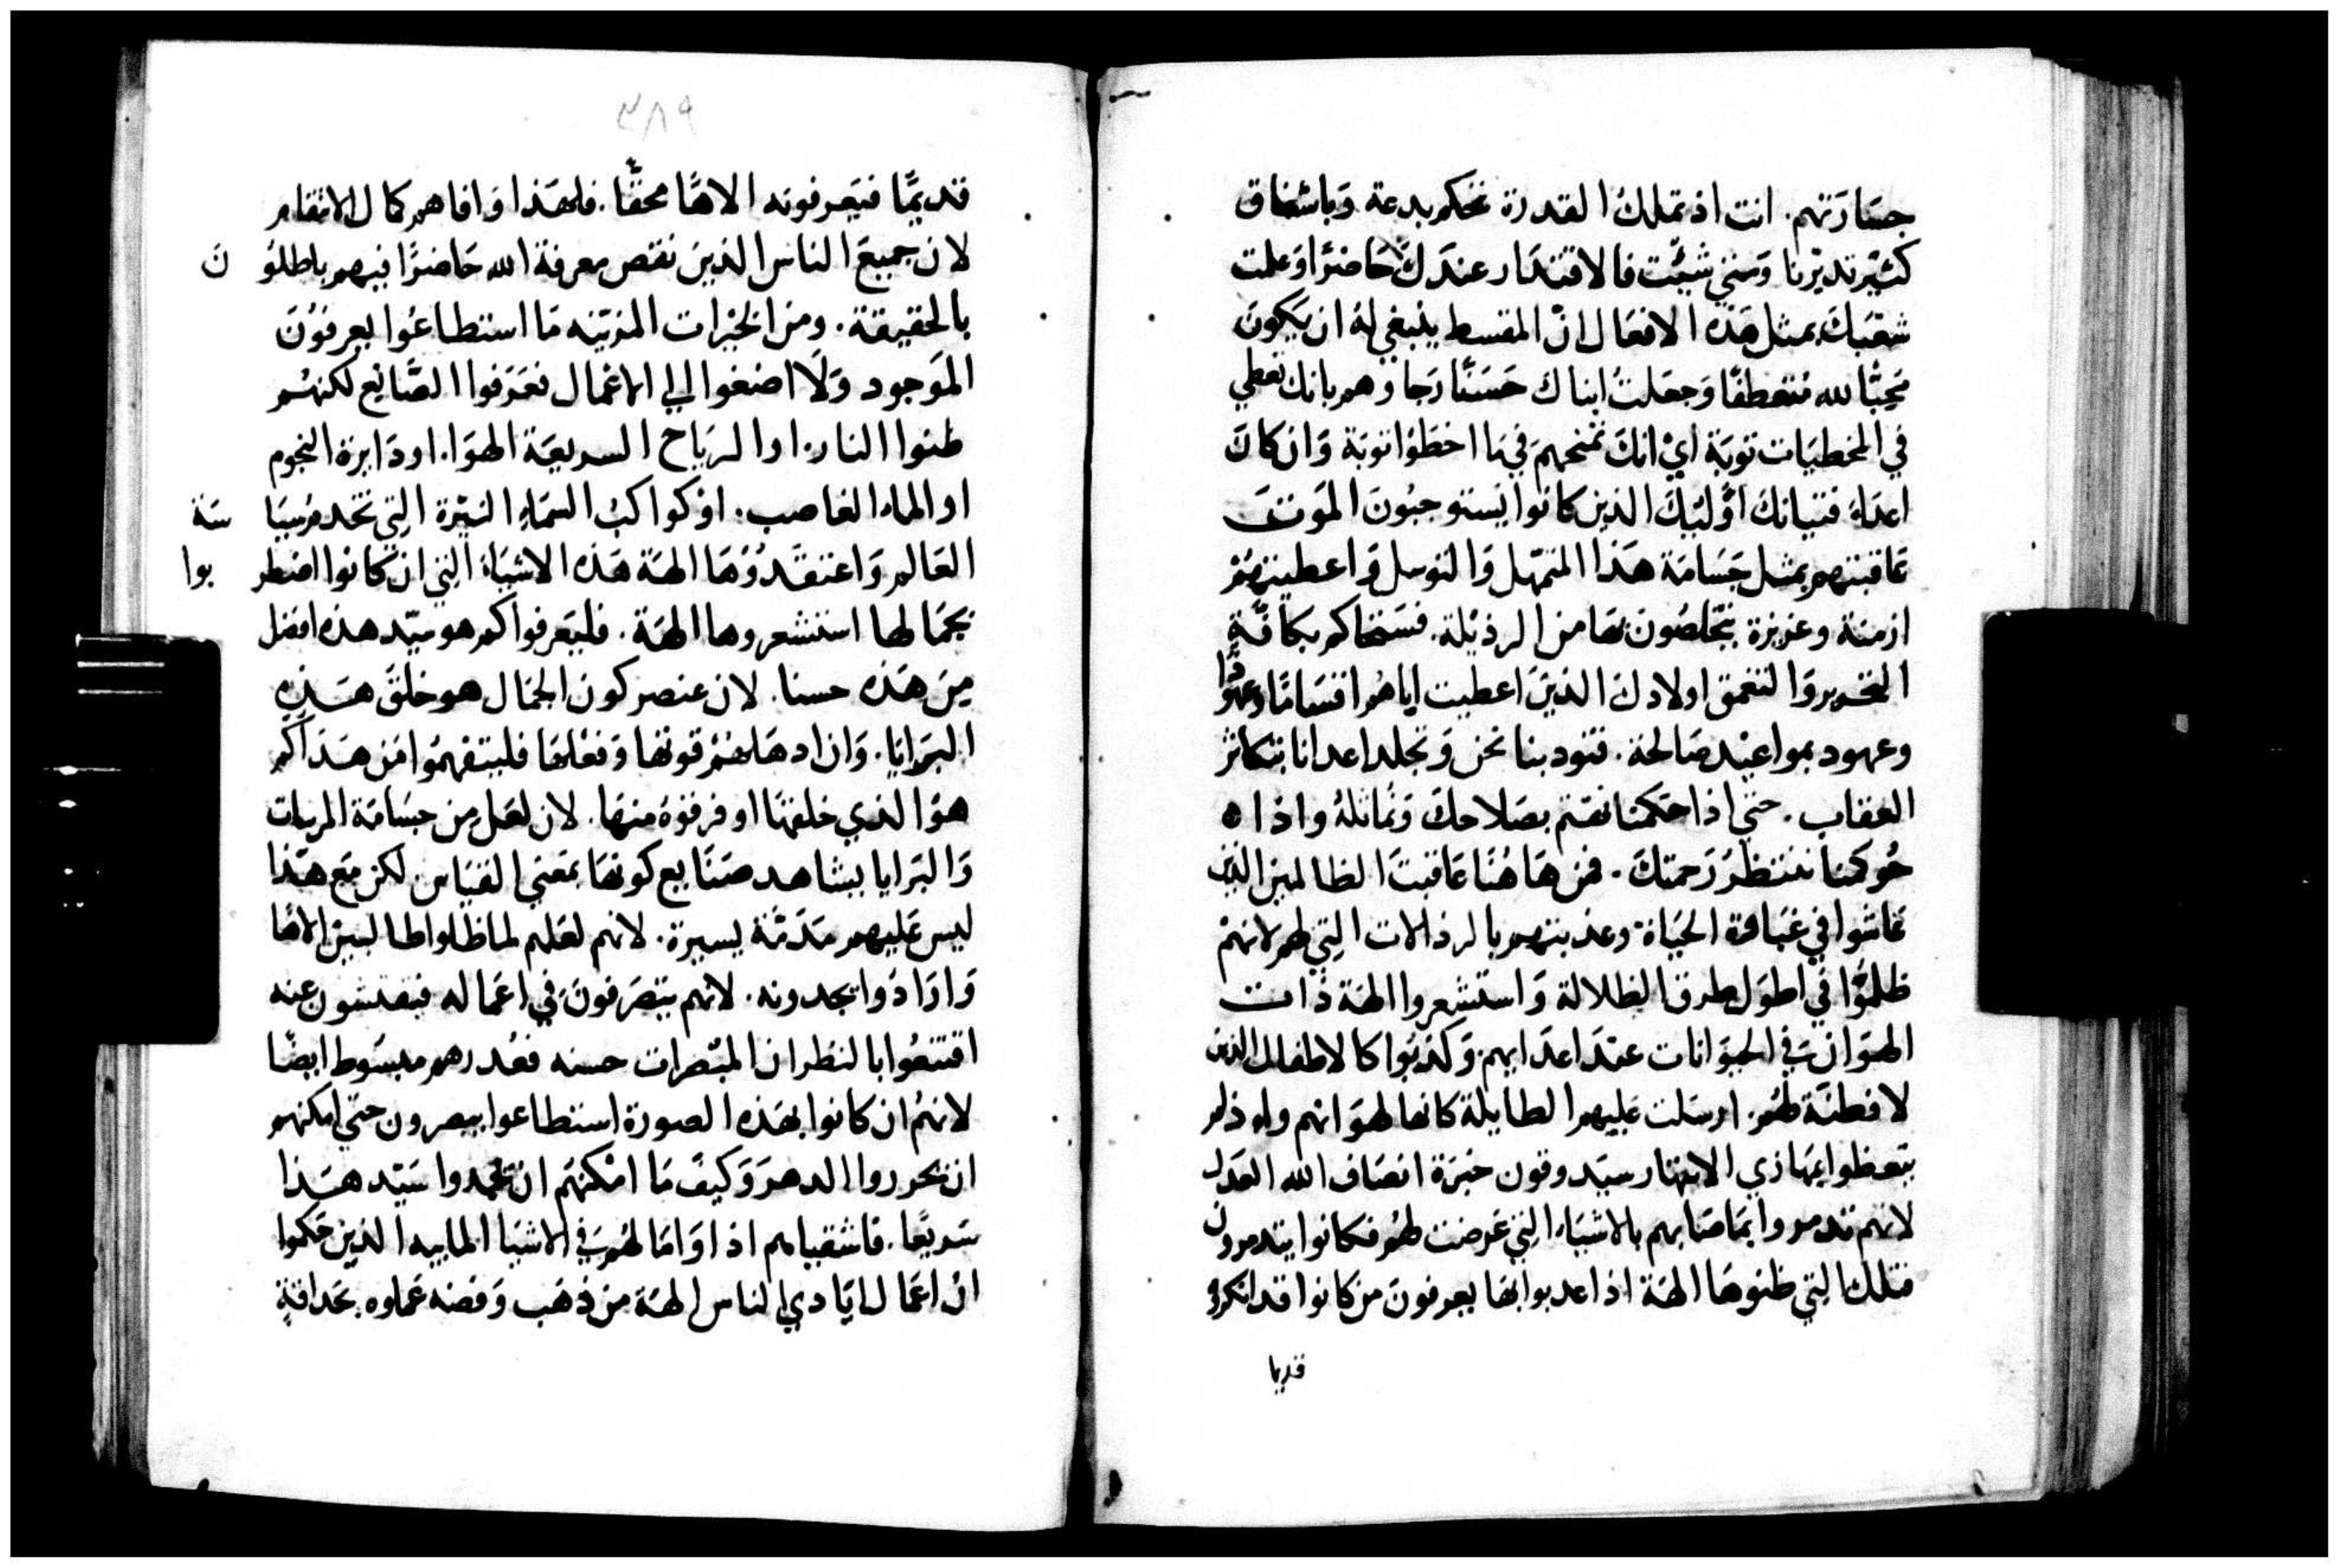 جسَارَتهم. انت اذ تملكُ القدرة تحكم بدعة. وَباشفاق
كثير تدبرنا وَمتي شيّت فالاقتدَار عندَكَ حَاضرًا وَعلمت
شعْبَكَ بمثل هَذه الافعَال ان المقسط ينبغي لهُ ان يَكونَ
محِبًّا لله مُتعطفًا وَجعَلتُ ابناك حَسَنًا رَجاوهم بانك تعطي
في الخطيَات توبَة ايْ انكَ تمنحهمَ في مَا اخطَوْا توبَة وَان كانَ
اعدَاء فتيانك اُوليكَ الذين كانوا يَستوجبُونَ الموَت
عَاقبتهم بمثل جَسَامَة هَذا التمهّل وَالتوسل وَاعطيتهُمْ
ازمنة وعزيزة يتخلصُون بهَا من الرذيْلة. فستحاكم بكافّة
التحرير وَالتعمق اولادكَ الذينَ اعطيت اباهُم اقسَامًا وعهودًا
وعهود بمواعيْد صَالحة. فتودبنا نحن وَتجلد اعدانا بتكاثر
العقاب. حتي اذا حَكمنا نهتم بصَلاحكَ وَنماثلهُ واذا ه
حُوكمنا ننتظرُ رَحمتكَ. فمن هَا هُنَا عَاقبتَ الظالمين الذين
عَاشوا في غبَاوة الحيَاة. وعذبتهم بالرذالات التي لهم لانهمْ
ظلموُّا في اطوَل طرق الظلالة وَاستشعروا الهَة ذات
الهوَان في الحيوَانات عندَ اعدَايهم. وَكذبوا كالاطفال الذين
لا فطنَة لهُم. ارسَلت عَليهم الطايلة كانها لهوَانهم
يتعظوا بهَا ذي الانتهار سيَدوقون خبرَة انصَاف الله العدل
لانهم تدمروا بمَا صَابهم بالاشيَاء التي عَرضت لهُم فكانوا يتدمرون
فتلك التي ظنوهَا الهَة اذ اعدبوا بهَا يعرفونَ من كانوا قد انكروُ
قديما
٣٨٩
قديمًا فيَعرفونه الاهًا محقًّا. فلهَذا وَافاهم كمال الانتقام
لان جميعَ الناس الذينَ نقص معرفة الله حَاضرًا فيهم باطلوُنَ
بالحقيقة. ومن الخيْرات المزيّنه مَا استطاعُوا يعرفوُنَ
الموَجود وَلَا اصغوا الي الاعمَال فعَرَفوا الصَّانع لكنهُم
ظنوا النار. او الريَاح السريعَة الهوَا. او دَايرة النجوم
او الماء الغاصب. اوْ كواكب السمَاء النيّرة التي تخدم سيَاسَة
العَالم وَاعتقَدُوْهَا الهَة هَذه الاشيَاء التي ان كانوا اضطربوا
بجمَالها استشعروها الهَة. فليَعرفوا كم هو سيّد هذه افضل
مِن هَذه حسنا. لان عنصر كون الجمَال هو خلقَ هَذه
البرَايَا. وَان ادهَلهُمْ قوتها وَفعْلهَا فليتفهمُوا من هَذا كم
هوَ الذي خلقهَا اوفر قوةً منهَا. لان لعَل من جسَامَة المريات
وَالبرَايا يشاهد صَنَايع كونها بمَعني القيَاس. لكن مَع هَذا
ليس عَليهم مَدمَّة يسيرة. لانهم لعَلهم لما ظلوا طالبين الاهًا
وَارَادُوا يجدونه. لانهم يتصَرفونَ في اعمَاله فيفتشون عنه
اقتنعُوا بالنظر ان المبْصرات حسنه فعُدرهم مبسُوط ايضًا
لانهُم ان كانوا بهَذه الصورَة استطاعوا يبصرون حتي امكنهم
ان يحرروا الدهرَ وَكيفَ مَا امْكنهَم ان يجدوا سَيّد هَذا
سَريعًا. فاشقيا هم اذا وَامَالهُم في الاشيَا المايته الذين حَكموا
ان اعمَال ايَادي الناس الهَة من ذهَب وَفضه عَملوه بحَداقةٍ